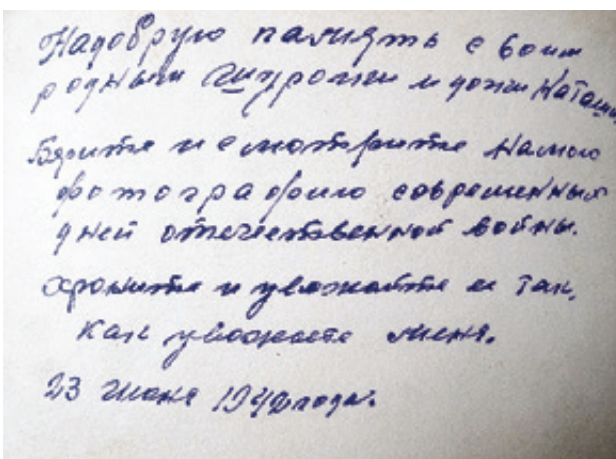 Надобрую память своим
родным Шурочки и дочки Наташи
Бярите и смотрите намою
фотографию современных
дней отечественной войны.
Хроните и уважайте ее так,
как уважаете меня.
23 Июня 1942 года.